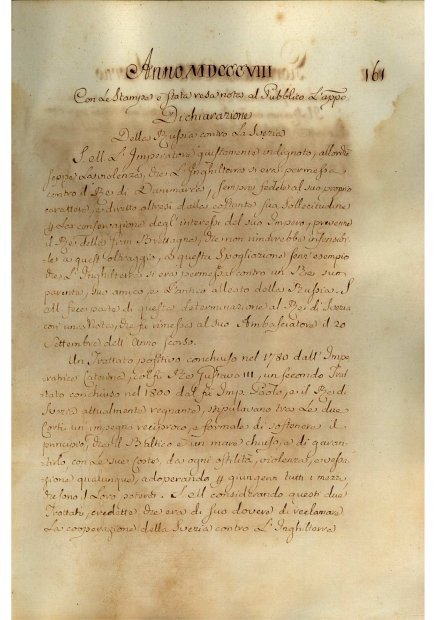 Anno MDCCCVIII
161
Con le Stampe è stata resa nota al Pubblico l'appo
Dichiarazione
Della Russia contro la Svezia
S. M. L'Imperatore giustamente indegnato, allorchè
seppe la violenza, che l'Inghilterra si era permessa
contro il Re di Danimarca, sempre fedele al suo proprio
carattere, e diretto altresì dalla costante sua sollecitudine
p la conservazione degl'interessi del suo Impero, prevenne
il Re della Gran Brettagna, che non rimarrebbe insensibi-
le a quest'oltraggio, e questa spogliazione senz'esempio
che l'Inghilterra si era permessa contro un Re suo
parente, suo amico, e l'antico alleato della Russia. S.
M. fece parte di questa determinazione al Re di Svezia
con una Nota, che fu rimessa al suo Ambasciatore il 20
Settembre dell'Anno scorso.
Un Trattato positivo conchiuso nel 1780 dall'Impe
ratrice Caterina, col fu Re Gustavo III, un secondo Trat
tato conchiuso nel 1800 dal fu Imp. Paolo, e il Re di
Svezia attualmente regnante, stipulavano tra le due
Corti un impegno reciproco e formale di sostenere il
principio, che il Baltico è un mare chiuso, e di garan-
tirlo con le sue Coste, da ogni ostilità, violenza, e vessa
zione qualunque, adoperando p giungervi tutti i mezzi,
che sono in loro potere. S. M. considerando questi due
Trattati, credette che era di suo dovere di reclamare
la cooperazione della Svezia contro l'Inghilterra